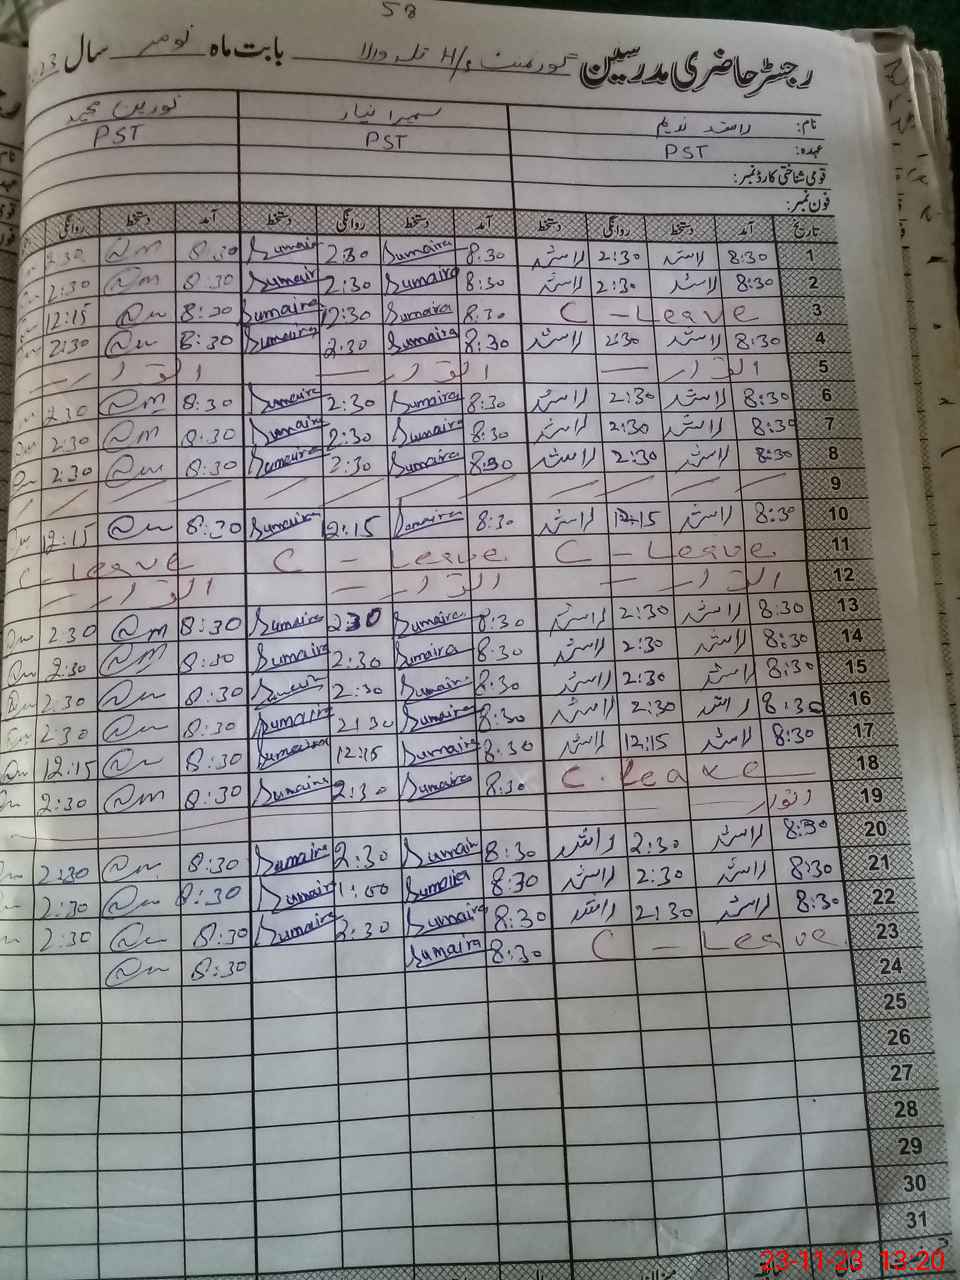 58
رجسٹر حاضری مدرسین گورنمنٹ H/S والا بابت ماہ نومبر سال 23
نام: راشد ندیم سمیرا نیاز نورین محمد
عہدہ: PST PST PST
قومی شناختی کارڈ نمبر:
فون نمبر:
تاریخ آمد دستخط روانگی دستخط آمد دستخط روانگی دستخط آمد دستخط روانگی
1 8:30 راشد 2:30 راشد 8:30 Sumaira 2:30 Sumaira 8:30 2:30
2 8:30 راشد 2:30 راشد 8:30 Sumaira 2:30 Sumaira 8:30 2:30
3 C - Leave 8:30 Sumaira 12:30 Sumaira 8:30 12:15
4 8:30 راشد 2:30 راشد 8:30 Sumaira 2:30 Sumaira 8:30 2:30
5 اتوار — اتوار — اتوار —
6 8:30 راشد 2:30 راشد 8:30 Sumaira 2:30 Sumaira 8:30 2:30
7 8:30 راشد 2:30 راشد 8:30 Sumaira 2:30 Sumaira 8:30 2:30
8 8:30 راشد 2:30 راشد 8:30 Sumaira 2:30 Sumaira 8:30 2:30
9
10 8:30 راشد 12:15 راشد 8:30 Sumaira 2:15 Sumaira 8:30 12:15
11 C - Leave C - Leave C - Leave
12 اتوار — اتوار — اتوار —
13 8:30 راشد 2:30 راشد 8:30 Sumaira 2:30 Sumaira 8:30 2:30
14 8:30 راشد 2:30 راشد 8:30 Sumaira 2:30 Sumaira 8:30 2:30
15 8:30 راشد 2:30 راشد 8:30 Sumaira 2:30 Sumaira 8:30 2:30
16 8:30 راشد 2:30 راشد 8:30 Sumaira 2:30 Sumaira 8:30 2:30
17 8:30 راشد 12:15 راشد 8:30 Sumaira 12:15 Sumaira 8:30 12:15
18 C. Leave 8:30 Sumaira 2:30 Sumaira 8:30 2:30
19 اتوار
20 8:30 راشد 2:30 راشد 8:30 Sumaira 2:30 Sumaira 8:30 2:30
21 8:30 راشد 2:30 راشد 8:30 Sumaira 1:00 Sumaira 8:30 2:30
22 8:30 راشد 2:30 راشد 8:30 Sumaira 2:30 Sumaira 8:30 2:30
23 C - Leave 8:30 Sumaira 8:30
24
25
26
27
28
29
30
31
23-11-23 13:20